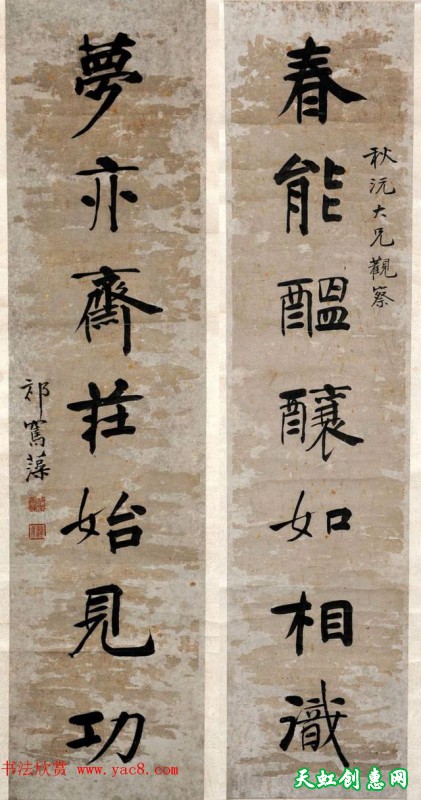 秋沅大兄觀察
春能醞釀如相識
夢亦齋莊始見功
祁寯藻
书法欣赏 www.yac8.com
天虹创惠网